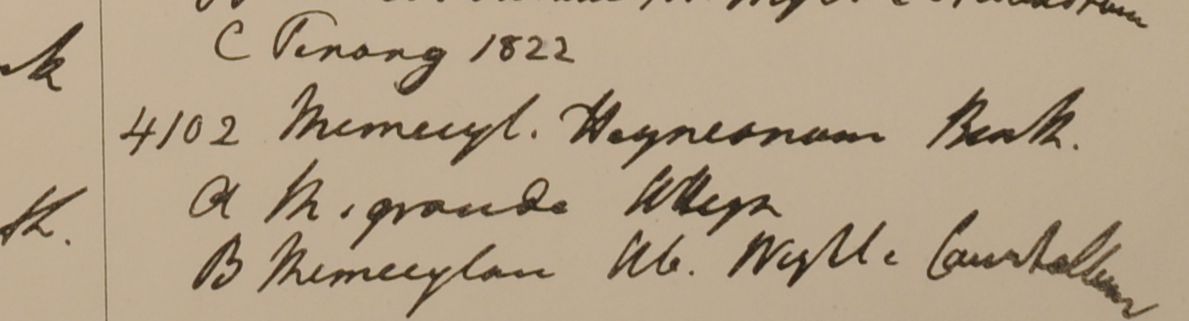 C Penang 1822
4102 Memecyl. Heyneanum Benth.
A M. grande Heyn
B Memecylon Hb. Wight. Courtallum